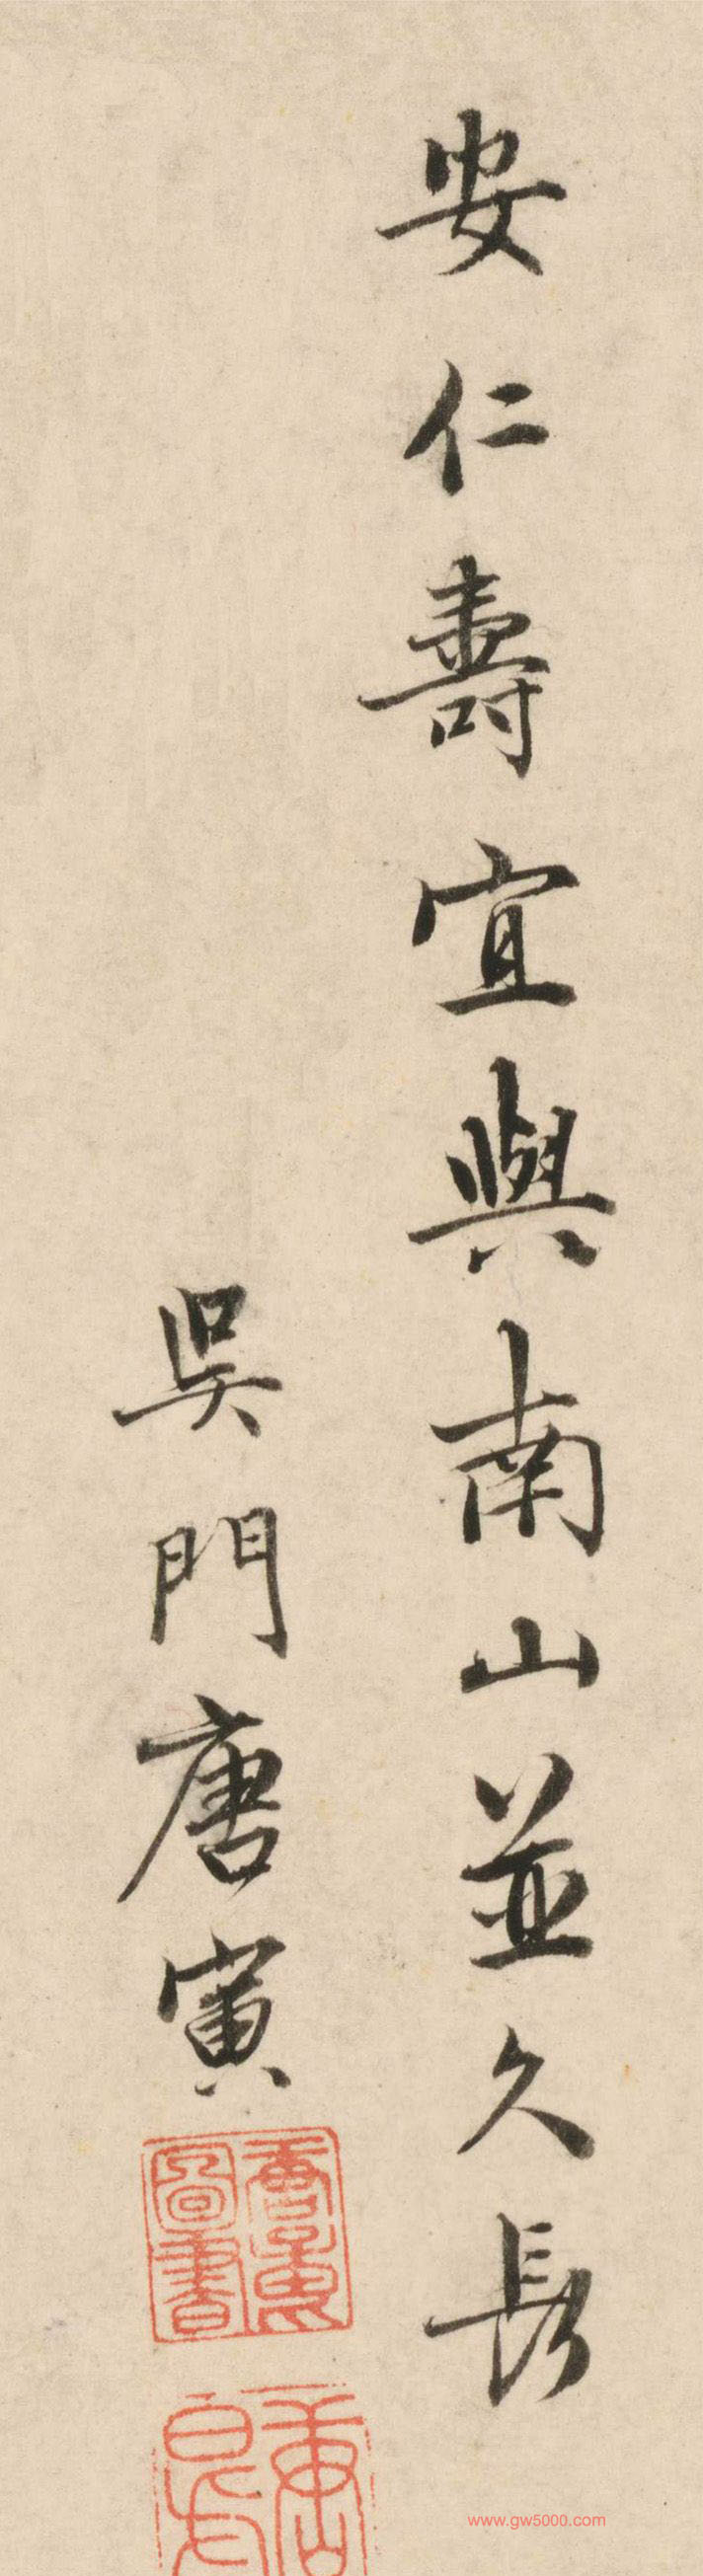 安仁壽宜與南山並久長
吳門唐寅
唐寅圖書
www.gw5000.com